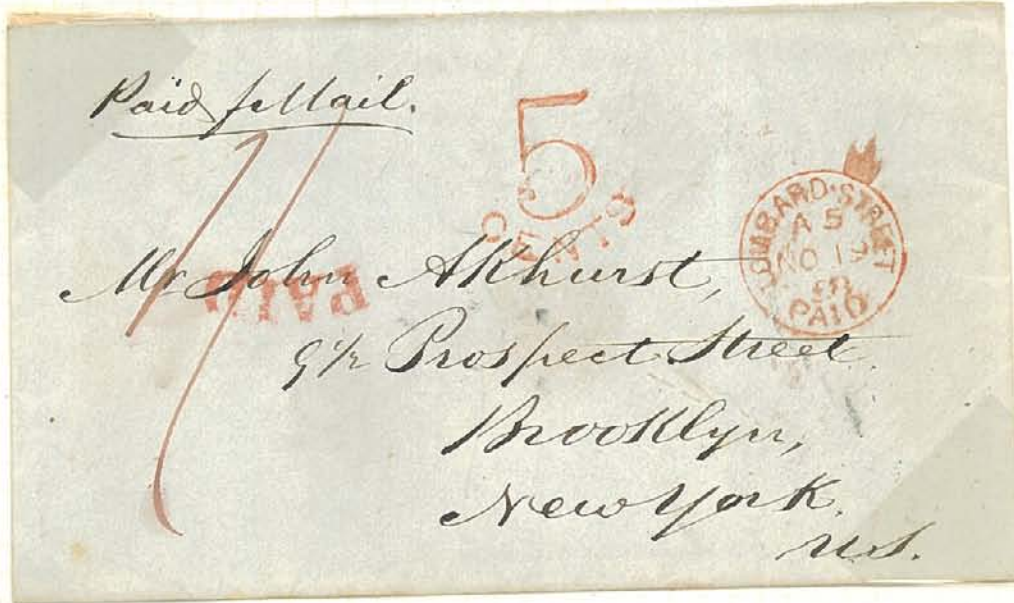 Paid p Mail.
5
CENTS
LOMBARD·STREET
A 5
NO 19
PAID
PAID
Mr John Akhurst,
9½ Prospect Street
Brooklyn,
New York.
U.S.